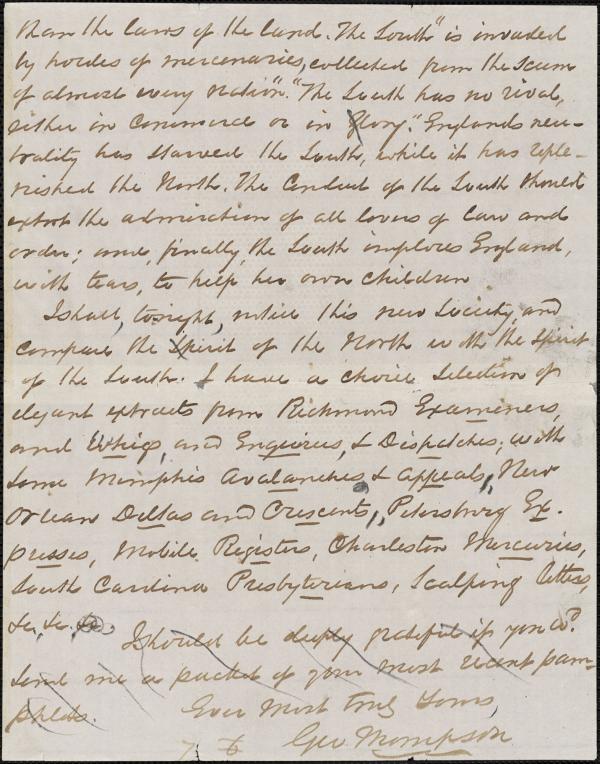 than the laws of the land. The South" is invaded
by hordes of mercenaries, collected from the scum
of almost every nation". "The South has no rival,
either in commerce or in glory." Englands neu-
trality has starved the South, while it has reple-
nished the North. The Conduct of the South should
extort the admiration of all lovers of law and
order; and, finally, the South implores England,
with tears, to help her own children
I shall, tonight, notice this new Society, and
compare the spirit of the North with the spirit
of the South. I have a choice selection of
elegant extracts from Richmond Examiners
and Whigs, and Enquirers, & Dispatches; with
some Memphis Avalanches & Appeals, New
Orlean Deltas and Crescents, Petersburg Ex-
presses, Mobile Registers, Charleston Mercuries,
South Carolina Presbyterians, Scalping
&c, &c. &c.
I should be deeply grateful if you wd.
send me a packet of your most recent pam-
phlets.
Ever Most truly Yours,
Geo Thompson